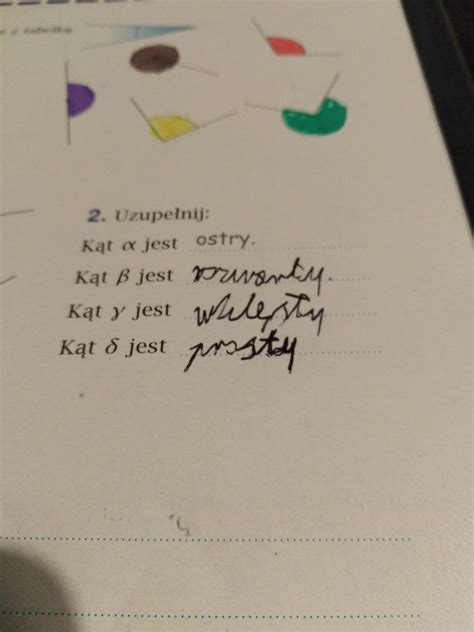 z tabelką
2. Uzupełnij:
Kąt α jest ostry.
Kąt β jest rozwarty.
Kąt γ jest wklęsły
Kąt δ jest prosty